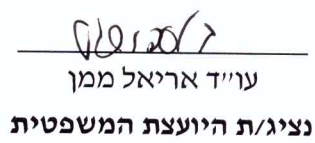 עו"ד אריאל ממן
נציג/ת היועצת המשפטית